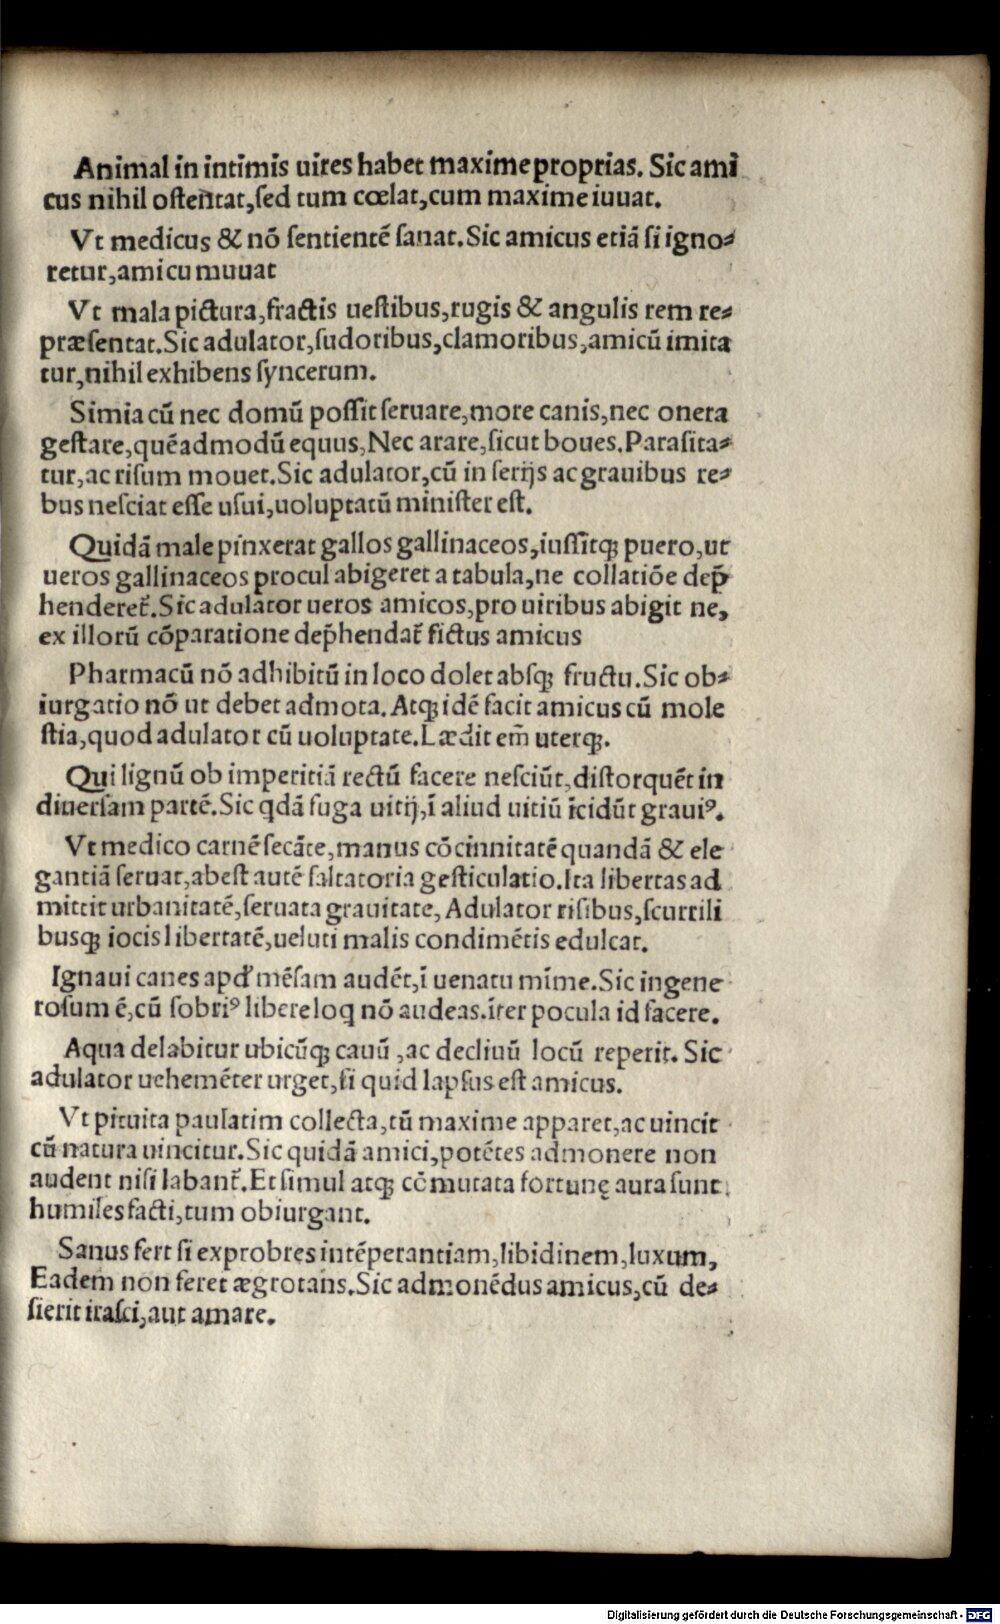 Animal in intimis uires habet maxime proprias. Sic ami
cus nihil ostentat, sed tum cœlat, cum maxime iuuat.
Vt medicus & nõ sentientẽ sanat. Sic amicus etiã si igno⸗
retur, amicu muuat
Vt mala pictura, fractis uestibus, rugis & angulis rem re⸗
præsentat. Sic adulator, sudoribus, clamoribus, amicũ imita
tur, nihil exhibens syncerum.
Simia cũ nec domũ possit seruare, more canis, nec onera
gestare, quẽadmodũ equus, Nec arare, sicut boues. Parasita⸗
tur, ac risum mouet. Sic adulator, cũ in serijs ac grauibus re⸗
bus nesciat esse usui, uoluptatũ minister est.
Quidã male pinxerat gallos gallinaceos, iussitqꝫ puero, ut
ueros gallinaceos procul abigeret a tabula, ne collatiõe dep̃
henderet᷑. Sic adulator ueros amicos, pro uiribus abigit ne,
ex illorũ cõparatione dep̃hendat᷑ fictus amicus
Pharmacũ nõ adhibitũ in loco dolet absqꝫ fructu. Sic ob⸗
iurgatio nõ ut debet admota. Atqꝫ idẽ facit amicus cũ mole
stia, quod adulator cũ uoluptate. Lædit em̃ uterqꝫ.
Qui lignũ ob imperitiã rectũ facere nesciũt, distorquẽt in
diuersam partẽ. Sic qdã fuga uitij, ĩ aliud uitiũ ĩcidũt grauiꝰ.
Vt medico carnẽ secãte, manus cõcinnitatẽ quandã & ele
gantiã seruat, abest autẽ saltatoria gesticulatio. Ita libertas ad
mittit urbanitatẽ, seruata grauitate, Adulator risibus, scurrili
busqꝫ iocis libertatẽ, ueluti malis condimẽtis edulcat.
Ignaui canes apđ mẽsam audẽt, ĩ uenatu mĩme. Sic ingene
rosum ẽ, cũ sobriꝰ libere loq nõ audeas. ĩter pocula id facere.
Aqua delabitur ubicũqꝫ cauũ, ac decliuũ locũ reperit. Sic
adulator uehemẽter urget, si quid lapsus est amicus.
Vt pituita paulatim collecta, tũ maxime apparet, ac uincit
cũ natura uincitur. Sic quidã amici, potẽtes admonere non
audent nisi labant᷑. Et simul atqꝫ cõmutata fortunę aura sunt
humiles facti, tum obiurgant.
Sanus fert si exprobres intẽperantiam, libidinem, luxum,
Eadem non feret ægrotans. Sic admonẽdus amicus, cũ de⸗
sierit irasci, aut amare.
Digitalisierung gefördert durch die Deutsche Forschungsgemeinschaft - DFG